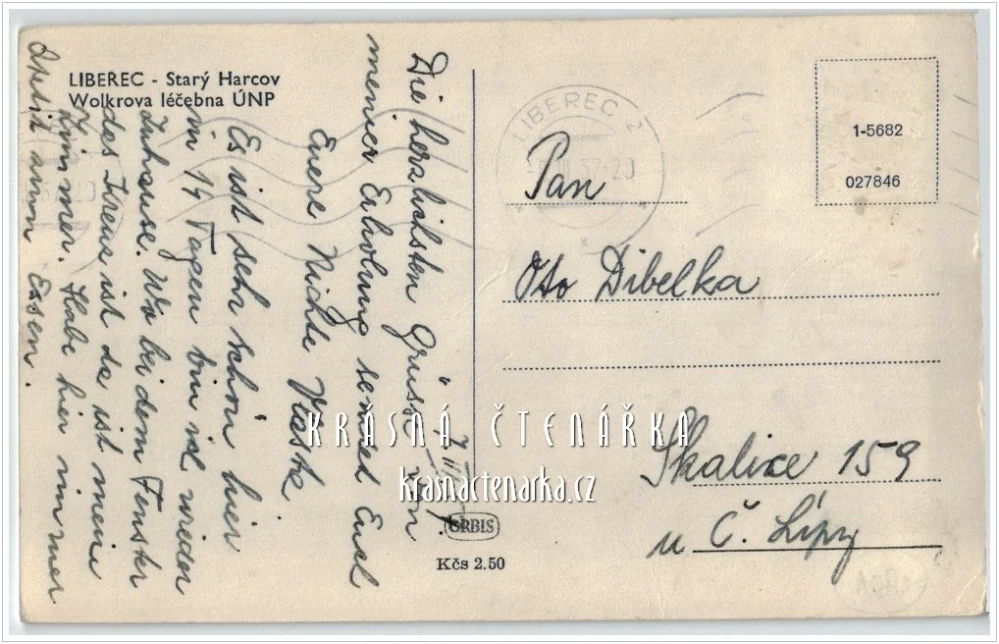 LIBEREC - Starý Harcov
Wolkrova léčebna ÚNP
7.II.57.
Die herzlichsten Grüsse von
meinier Erholung sendet Euch
Euere Nichte Vlasta
Es ist sehr schön hier
in 14 Tagen bin ich wieder
Zuhause. Wo bei dem Fenster
das Kreuz ist da ist mein
Zimmer. Habe hier immer
Apetit zum Essen.
LIBEREC 2
57-20
1-5682
027846
Pan
Oto Dibelka
Skalice 159
u Č. Lípy
KRÁSNÁ ČTENÁŘKA
krasnactenarka.cz
ORBIS
Kčs 2.50